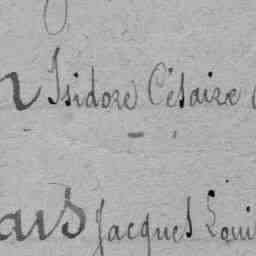 Isidore Césaire
ais Jacques Loui